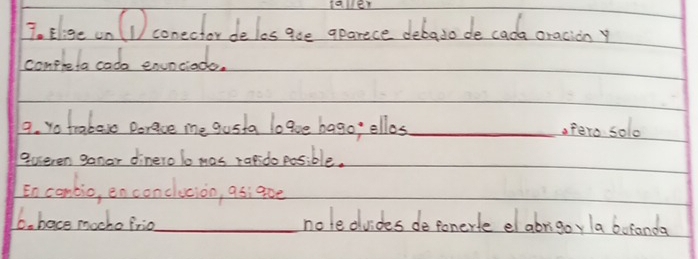 taller
7. Elige un (1) conector de los que aparece debajo de cada oración y
completa cada enunciado.
a. Yo trabajo porque me gusta lo que hago; ellos ____________ . Pero solo
quieren ganar dinero lo mas rapido posible.
En cambio, en conclución, asi que
b. hace mucho frio ____________ no te olvides de ponerte el abrigo y la bufanda